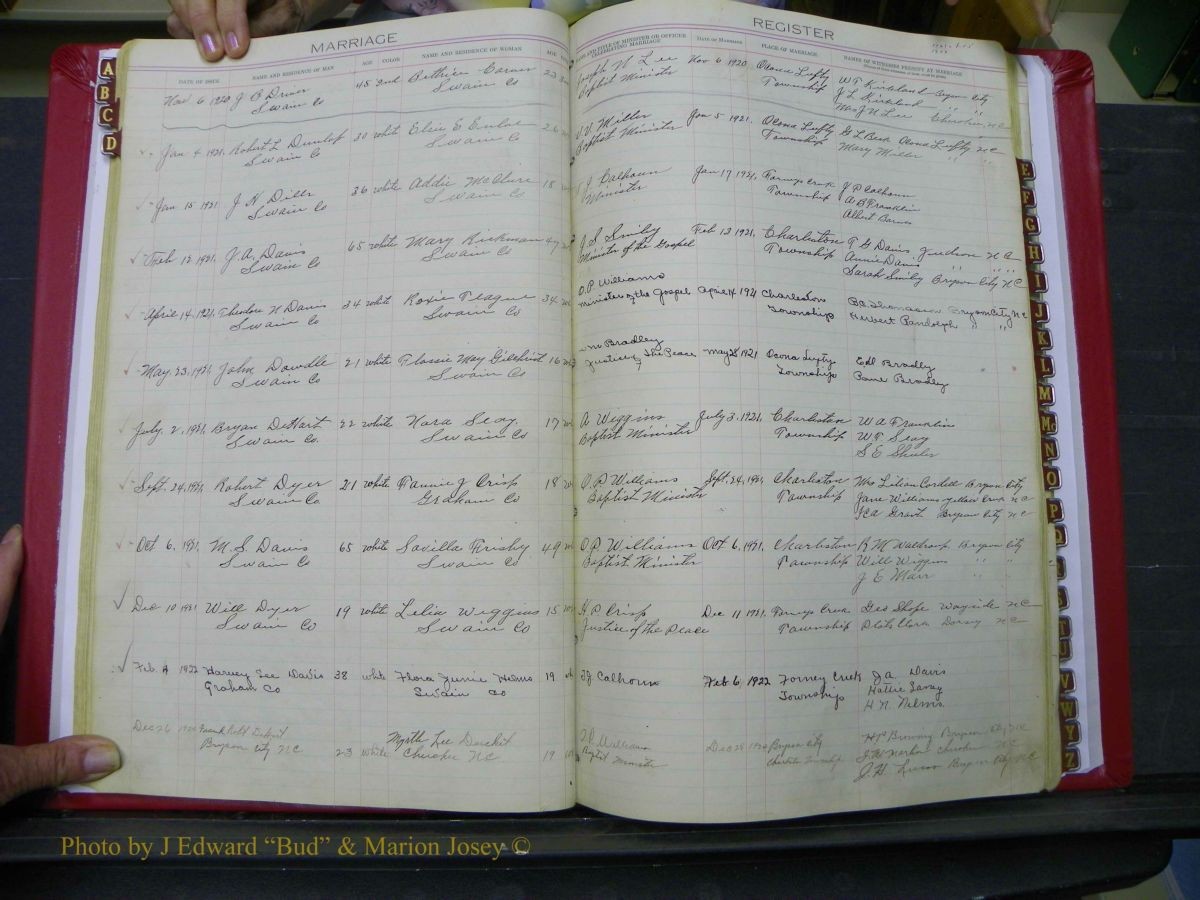 MARRIAGE REGISTER
DATE OF ISSUE NAME AND RESIDENCE OF MAN AGE COLOR NAME AND RESIDENCE OF WOMAN AGE
AND TITLE OF MINISTER OR OFFICER CELEBRATING MARRIAGE DATE OF MARRIAGE PLACE OF MARRIAGE NAMES OF WITNESSES PRESENT AT MARRIAGE
Nov 6 1920 J B Driver 45 Ind Bethier 23 Joseph N Lee Nov 6 1920 Ocona Lufty W T Kirkland Bryson City
Swain Co Swain Co Baptist Minister Township J L Kirkland " "
Mrs J N Lee Cherokee, N C
Jan 4 1921, Robert L Dunlop 30 white Elsie E Enloe 26 Miller Jan 5 1921. Ocona Lufty G L Beck Ocona Lufty NC
Swain Co Swain Co Baptist Minister Township Mary Miller " "
Jan 15 1921 J. N. Dills 36 white Addie McClure 18 J Calhoun Jan 17 1921, Forneys Creek J P Calhoun
Swain Co Swain Co Minister Township A B Franklin
Albert Barnes
Feb 12 1921, J. A. Davis 65 white Mary Kirkman 47 J. S. Smily Feb 12 1921, Charleston T G Davis Judson N C
Swain Co Swain Co Minister of the Gospel Township Annie Davis " "
Sarah Smily Bryson City N C
April 14, 1921, Theodore N Davis 34 white Roxie Teague 34 O. P Williams
Swain Co Swain Co Minister of the Gospel April 14 1921 Charleston Township B C Thomasson Bryson City N C
Herbert Randolph " "
May, 23, 1921, John Dowdle 21 white Flossie May Gilchrist 16 Wm Bradley
Swain Co Swain Co Justice of The Peace May 28 1921 Ocona Lufty Township Edd Bradley
Bradley
July, 2, 1921, Bryan DeHart 22 white Nora Seay 17 A Wiggins July 3, 1921, Charleston W A Franklin
Swain Co. Swain Co Baptist Minister Township W T. Seay
S E Shuler
Sept. 24, 1921, Robert Dyer 21 white Fannie J Crisp 18 O. P. Williams Sept. 24, 1921, Charleston Mrs Lillian Cordell Bryson City
Swain Co Graham Co Baptist Minister Township Jane Williams Yellow Creek N C
Grant Bryson City N C
Oct 6, 1921, M. S. Davis 65 white Savilla Frisby 49 O. P. Williams Oct 6, 1921, Charleston R M Waldroop Bryson City
Swain Co Swain Co Baptist Minister Township Will Wiggins " "
J E Marr " "
Dec 10 1921 Will Dyer 19 white Lelia Wiggins 15 H P Crisp Dec 11 1921. Forneys Creek Geo Shope Wayside N C
Swain Co Swain Co Justice of the Peace Township Plato Clark Dorsey N C
Feb. 4 1922 Harvey Lee Davis 38 white Flora Junie Helms 19 T. J Calhoun Feb 6, 1922 Forney Creek J A Davis
Graham Co Swain Co Township Hattie Seay
H N Nelms
Dec 26 Myrtle Lee 19 Williams Dec 28 1920 Bryson City Bryson City, N C
Bryson City N C 23 white Cherokee N C Baptist Minister Charleston Township Cherokee N C
J. H. Bryson City N C
A B C D E F G H I J K L M Mc N O P Q U V W Y Z
Photo by J Edward “Bud” & Marion Josey ©